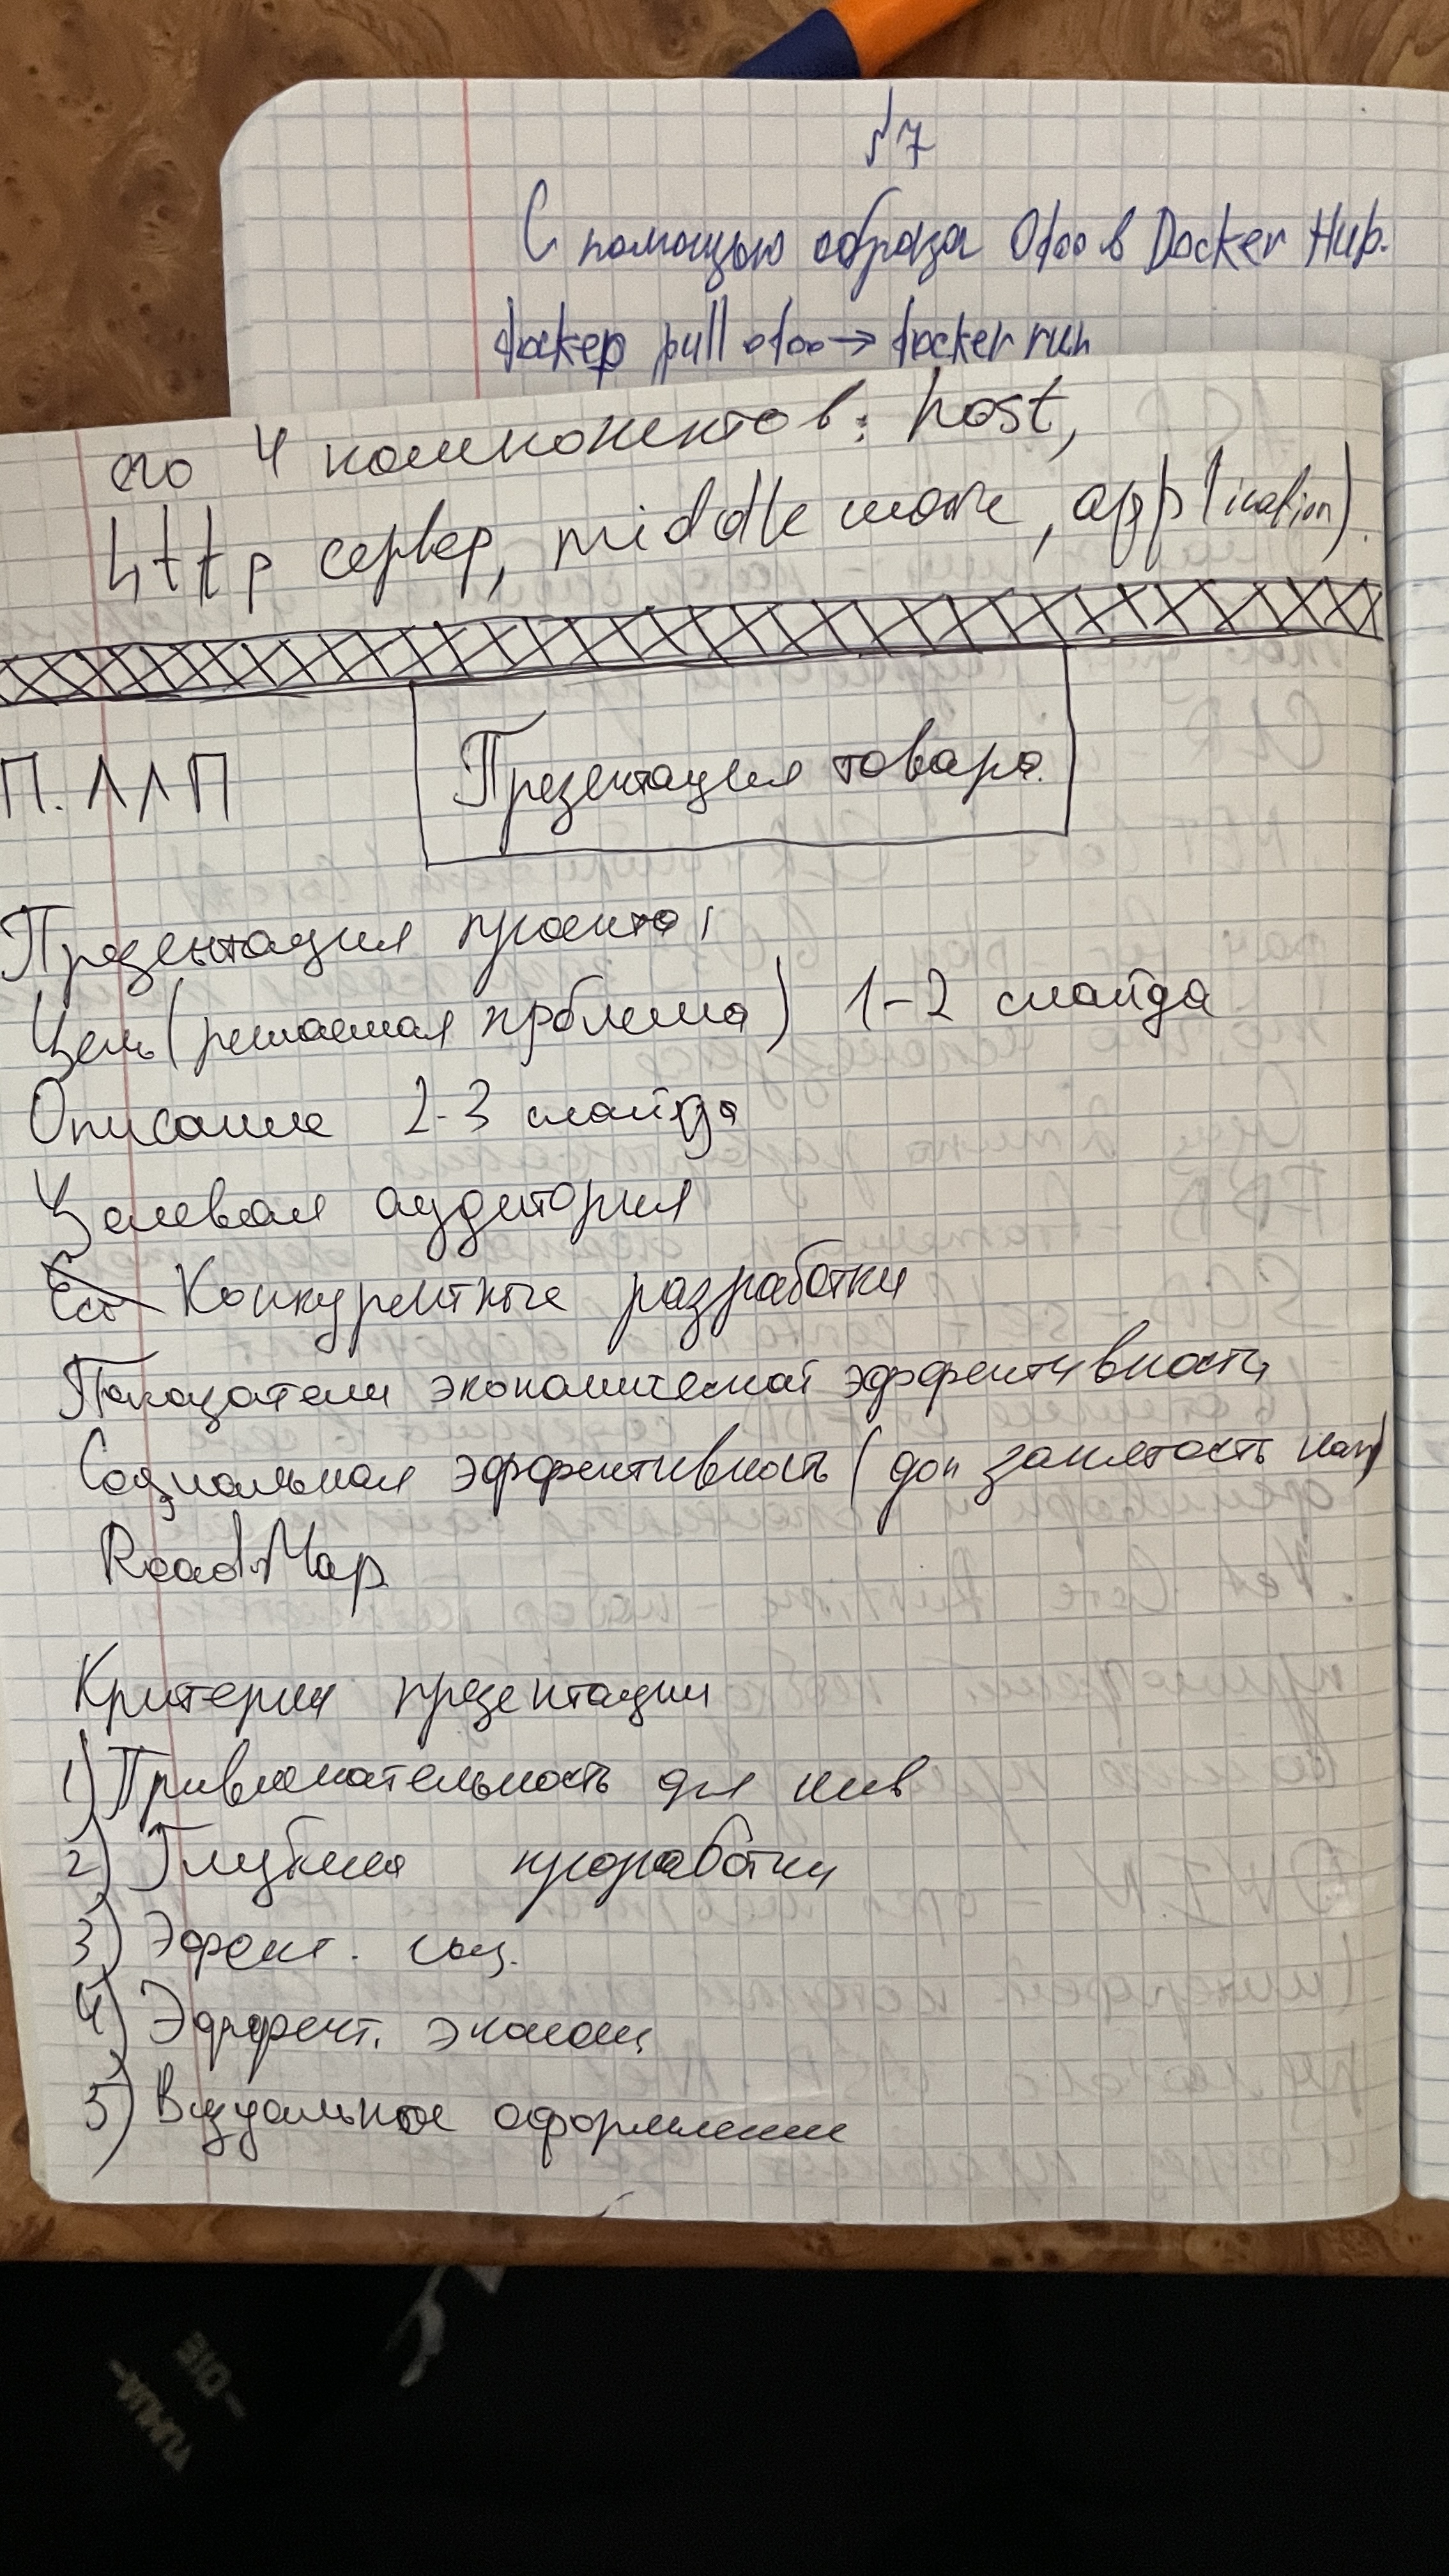 №7
С помощью образа Odoo в Docker Hub.
docker pull odoo → docker run
его 4 компонентов: host,
http сервер, middle ware, application)
П. ЛЛП
Презентация товара.
Презентация проекта:
Цель (решаемая прблема) 1-2 слайда
Описание 2-3 слайда
Целевая аудитория
Ест Конкурентные разработки
Показатели экономической эффективности
Социальная эффективность (доп занятость нас)
RoadMap
Критерии презентации
1) Привлекательность для инв
2) Глубина проработки
3) Эфект. соц.
4) Эффект. эконом
5) Визуальное оформление